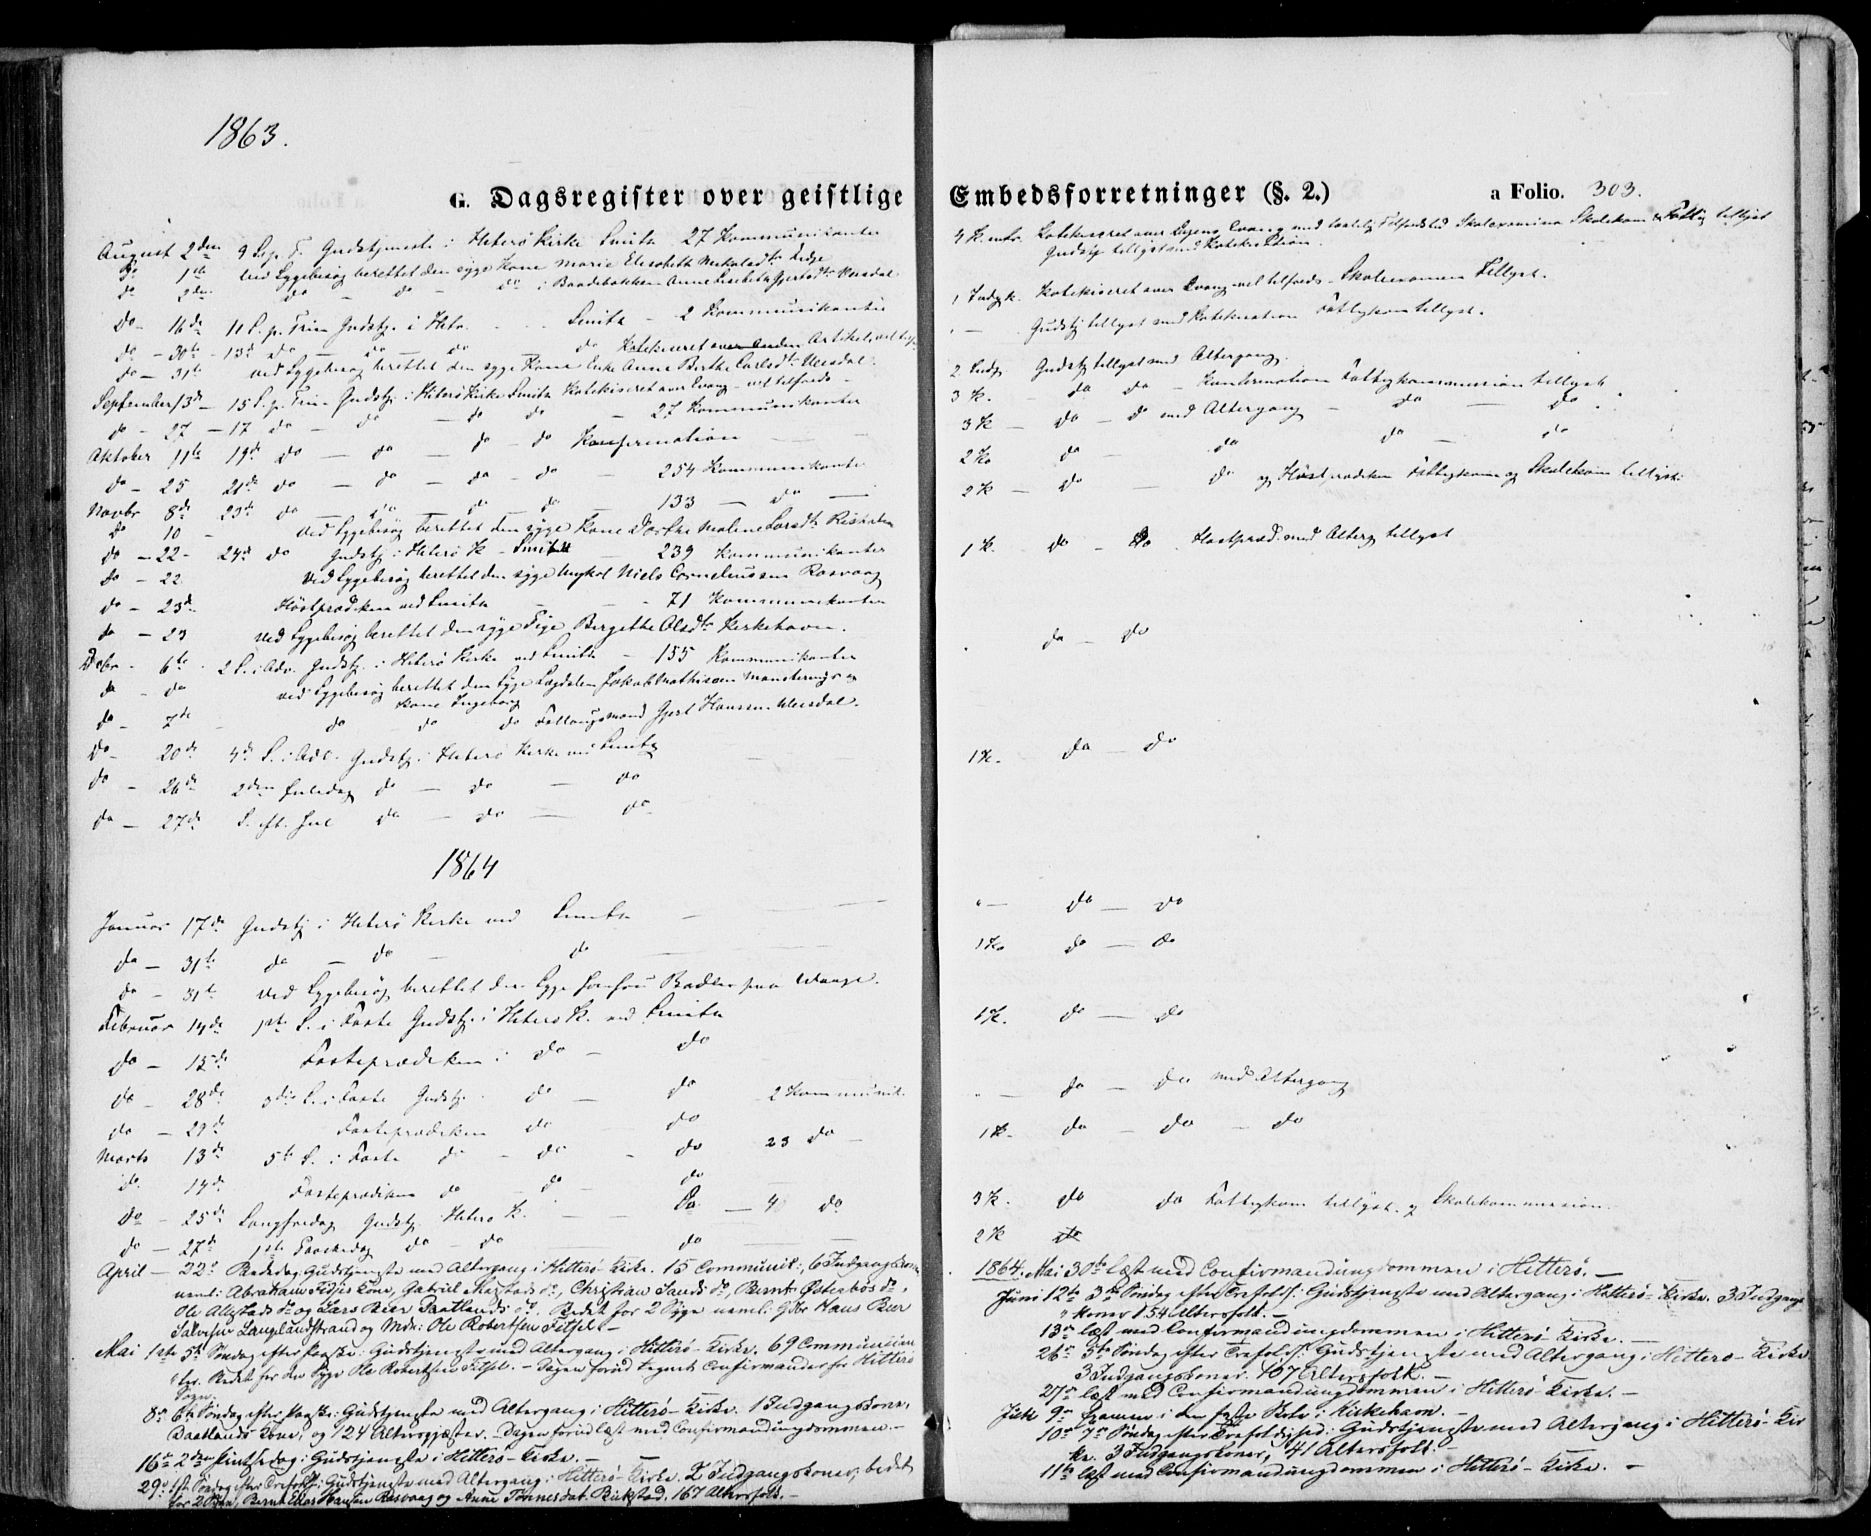 1863.
G. Dagsregister over geistlige
August 2den 9 S. p. T. Gudstjeneste i Hiterø Kirke Smith 27 Kommunikanter
do 1ste ved Sygebesøg berettet den syge Kone Marie Elisabeth
do 2den do - do - do i Baadebakken Anne
do 16de 11 S. p. Trin Gudstj. i Hiterø Smith - 2 Kommunikanter
do - 30te - 13de do - do - do - do Katekiseret over Anden Artikel
do - 31te ved Sygebesøg berettet den syge Kone Anne Berthe Carlsdtr
September 13de 15 S. p. Trin Gudstj. i Hiterø Kirke Smith Katekiseret over Evang. vel tilfreds -
do - 27 - 17 do - do - do do - 27 Kommunikanter
Oktober 11te 19de do - do - do - do Konfirmation
do - 25 21de do - do - do - do - 254 Kommunikanter
Novbr 8de 23de do - do - do - do - 133 - do
do 10 - ved Sygebesøg berettet den syge Kone Dorthe Malene Larsdtr
do - 22 - 24de do Gudstj. i Hiterø K - Smith 239 Kommunikanter
do - 22 ved Sygebesøg berettet den syge Ungkal Niels Corneliussen Rasvaag
do - 23de Høstprædiken ved Smith - 71 Kommunikanter
do - 23 ved Sygebesøg berettet den syge Pige Bergithe Olsdtr Kirkehavn.
Decbr - 6te - 2 S. i Adv. Gudstj. i Hiterø Kirke ved Smith - 155 Kommunikanter
do - do ved Sygebesøg berettet den syge Jakob Mathisen
Kone Ingeborg
do - 7de - do do do Gjert Hansen
do - 20de 4de S. i Adv. Gudstj. i Hiterø Kirke ved Smith
do - 26de 2den Juledag do - do - do
do - 27de S. eft. Jul do - do - do
1864
Januar 17de Gudstj. i Hiterø Kirke ved Smith
do - 31te do - do - do
do - 31te ved Sygebesøg berettet den syge Jomfru paa
Februar 14de 1ste S. i Faste Gudstj. i Hiterø K. ved Smith
do - 15de Fasteprædiken i do - do
do - 28de 3die S. i Faste Gudstj. do - do 2 Kommunik.
do - 29de Fasteprædiken do do
Marts 13de 5te S. i Faste do - do - do 23 do -
do. 14de Fasteprædiken do - do - do
do - 25de Langfredag Gudstj. Hiterø K. - do - 4 do
do - 27de 1ste Paaskedag do - do do
April - 22de Bededag: Gudstjeneste med Altergang i Hitterø Kirke. 15 Communik., 6 Indgangskoner
neml: Abraham Fidjes Kone, Gabriel do, Christian Sands do, Bernt Østerbøs do,
Ole do og Lars Peer Daatlands do. Bedet for 2 Syge neml: Gbr Hans Peer
Salvesen Langelandstrand og Mdm: Ole Robertsen Fitsel. -
Mai 1ste 5te Søndag efter Paaske: Gudstjeneste med Altergang i Hitterø Kirke. 69 Communikan
ter. Bedet for den Syge Ole Robertsen Fitsel. - Dagen forud tegnet Confirmander for Hitterø
Sogn.
8de 6te Søndag efter Paaske: Gudstjeneste med Altergang i Hitterø-Kirke. 1 Indgangskone,
Daatlands Kone, og 124 Altersgjæster. - Dagen forud læst med Confirmandungdommen. -
16de 2den Pintsedag: Gudstjeneste i Hitterø-Kirke. -
29de 1ste Søndag efter Trefoldh: Gudstjeneste med Altergang i Hitterø-Kirke. 2 Indgangskoner, bedet
for 2 Syge, Bernt Elias Hansen Rasvaag og Anne Tønnesdat. Rikstad. 167 Altersfolk. -
Embedsforretninger (§. 2.) a Folio. 303.
4 K. Katekiseret over Dagens Evang. med Skoleexamina Skolekom. & Fattig tillyst
Gudstj. tillyst med Katekisation.
1 Indgk. Katekiseret over Evang. vel tilfreds - Skoleexamen tillyst.
" - Gudstj. tillyst med Katekisation Fattigkom tillyst.
2 Indg. Gudstj. tillyst med Altergang.
3 K. - do do - Konfirmation Fattigkommission tillyst
3 K - do - do med Altergang - do - do
2 Ko do - do do - do
2 K - do - do og Høstprædiken Fattigkom og Skolekom tillyst.
1 K. do - do Høstpræd. med Alterg. tillyst
do - do
1 K. do - do
" - do - do
1 Ko do - do
1 K. do - do
" - do - do med Altergang
1 K. do - do - do
3 K. do do Fattigkom tillyst. og Skolekommission.
2 K do
1864. Mai 30te læst med Confirmandungdommen i Hitterø. -
Juni 12te 3de Søndag efter Trefoldh: Gudstjeneste med Altergang i Hitterø-Kirke. 3 Indgangs
" koner 154 Altersfolk. -
13de læst med Confirmandungdommen i Hitterø Kirke. -
26de 5te Søndag efter Trefoldh: Gudstjeneste med Altergang i Hitterø-Kirke
3 Indgangskoner. 107 Altersfolk. -
27de læst med Confirmandungdommen i Hitterø-Kirke. -
Juli 9de Examen i den faste Skole i Kirkehavn. -
10de 7de Søndag efter Trefoldighed: Gudstjeneste med Altergang i Hitterø-Kir
ke. 3 Indgangskoner, 41 Altersfolk. -
11te læst med Confirmandungdommen i Hitterø-Kirke. -